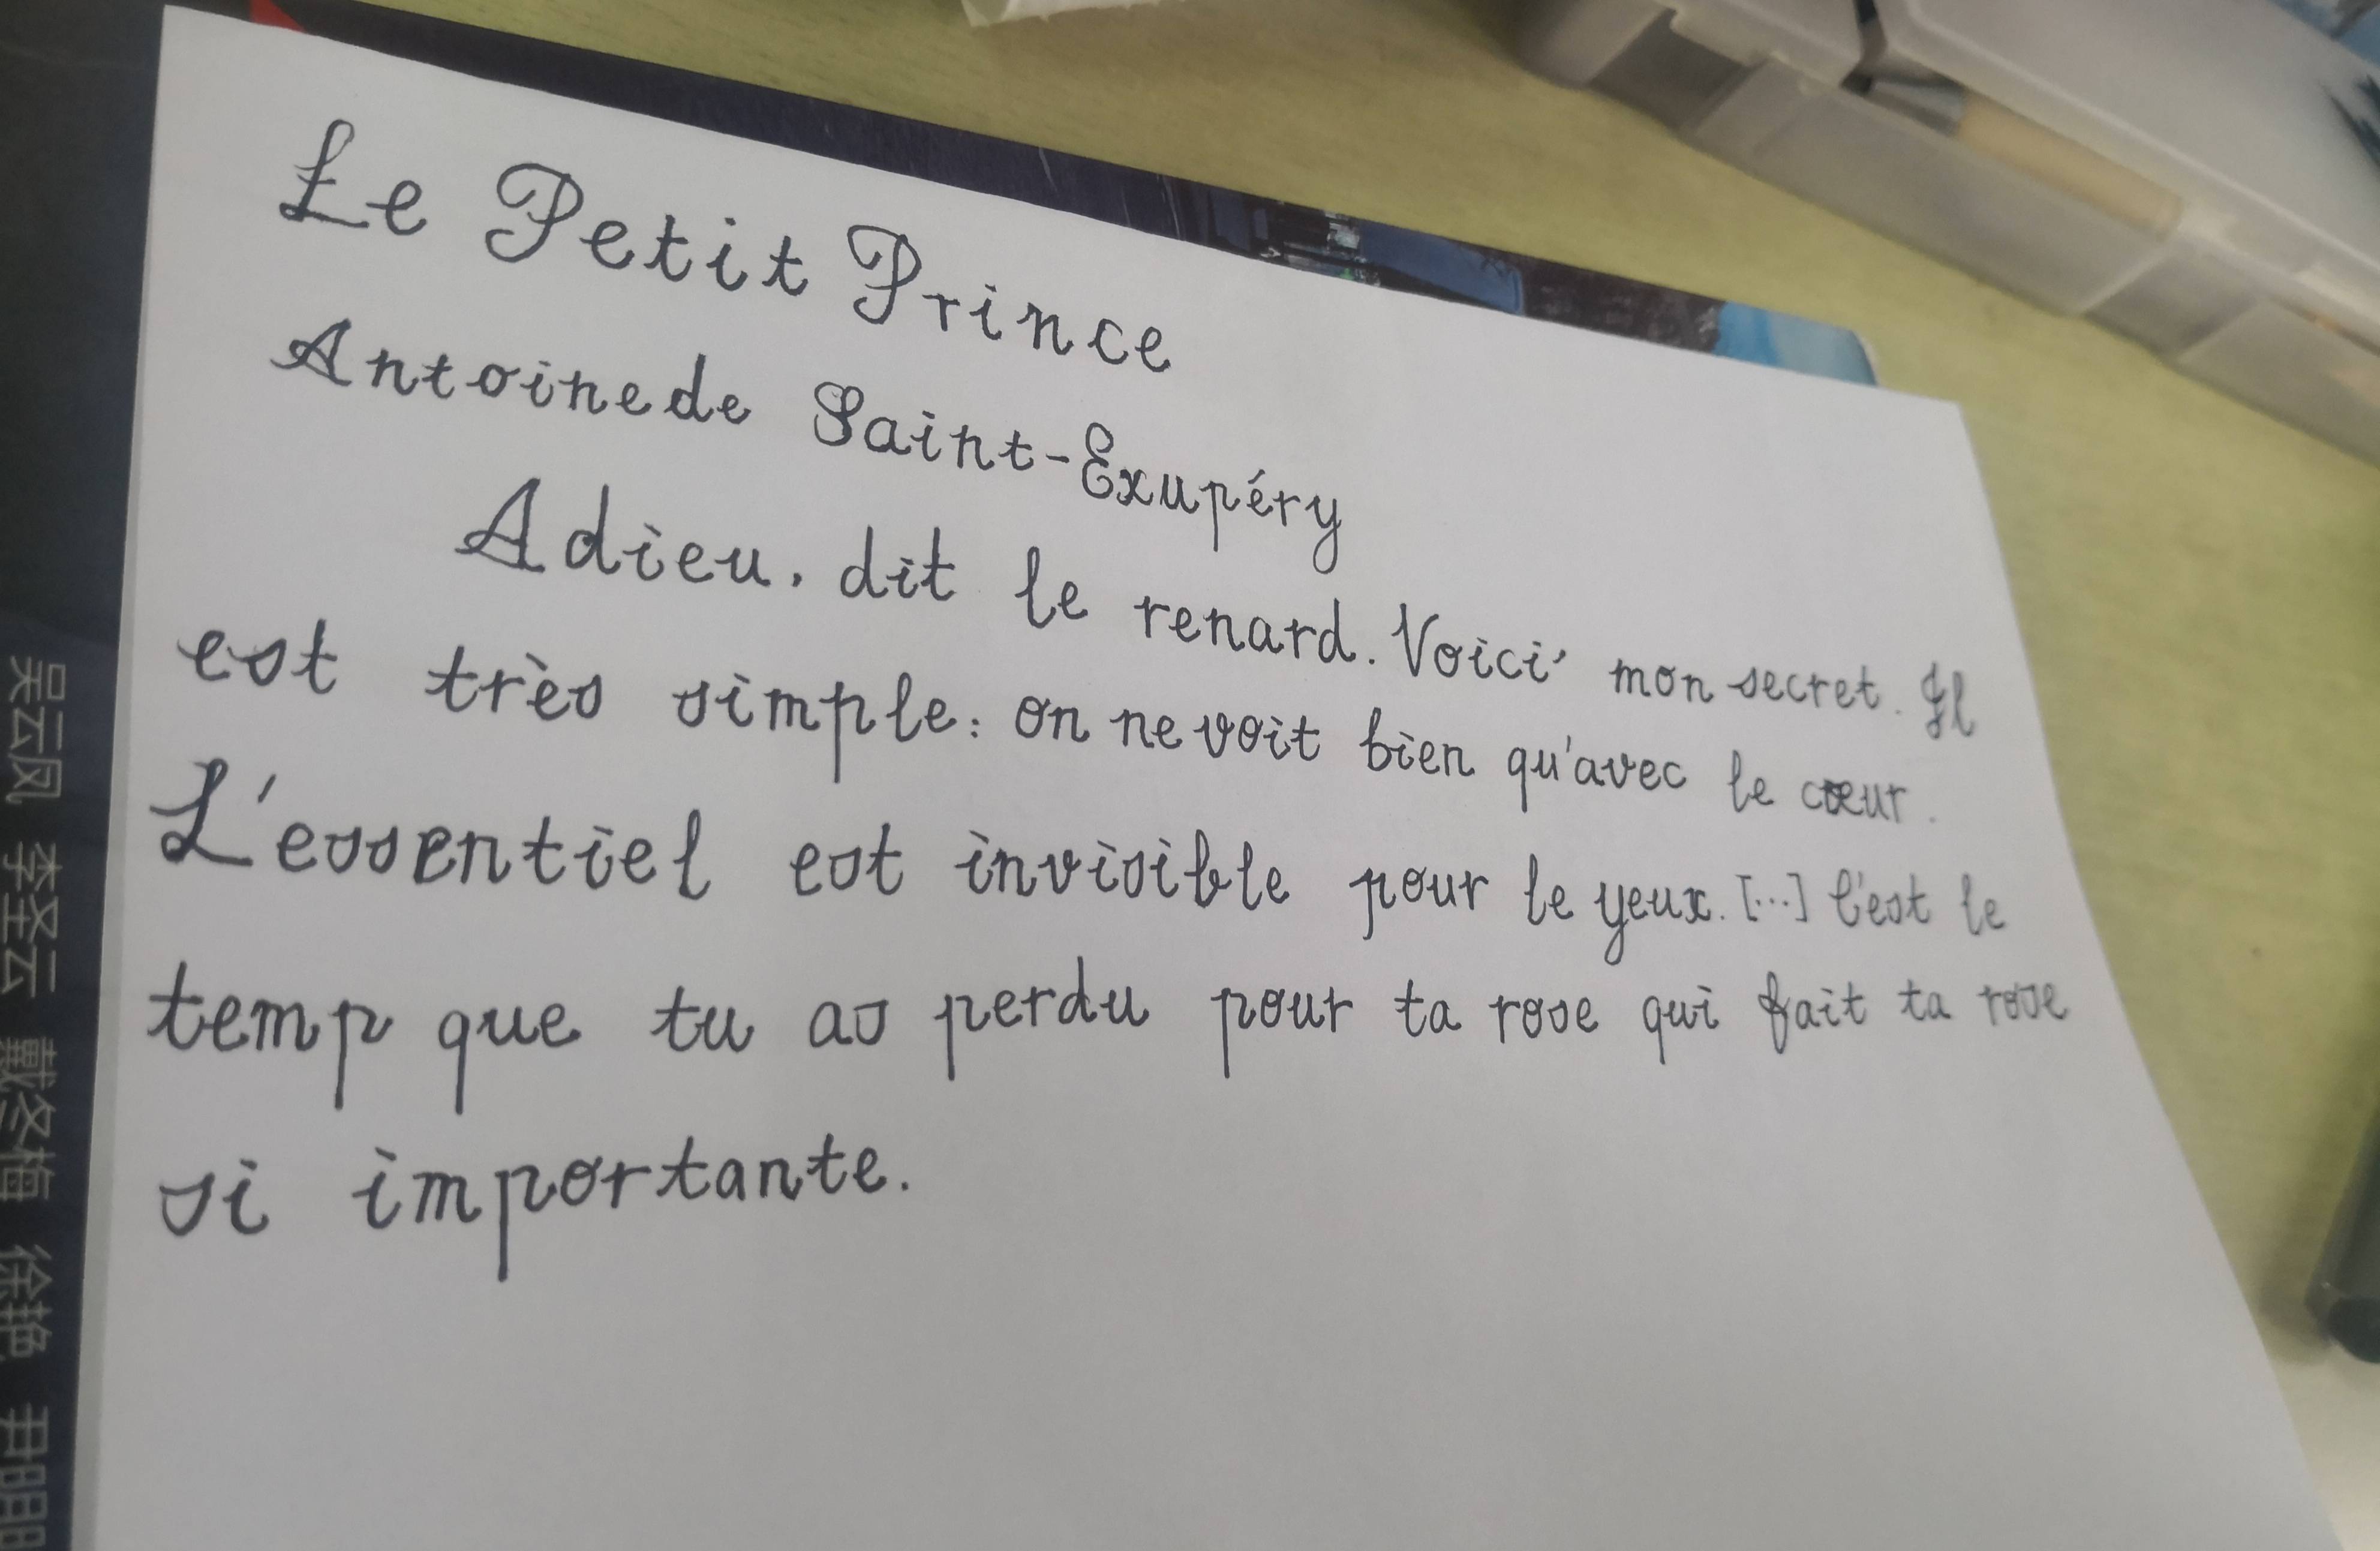 Le Petit Prince
Antoine de Saint-Exupéry
Adieu, dit le renard. Voici mon secret. Il
est très simple: on ne voit bien qu'avec le cœur.
L'essentiel est invisible pour le yeux. [...] C'est le
temp que tu as perdu pour ta rose qui fait ta rose
si importante.
吴云风 李圣云 戴冬梅 徐艳 尹明明